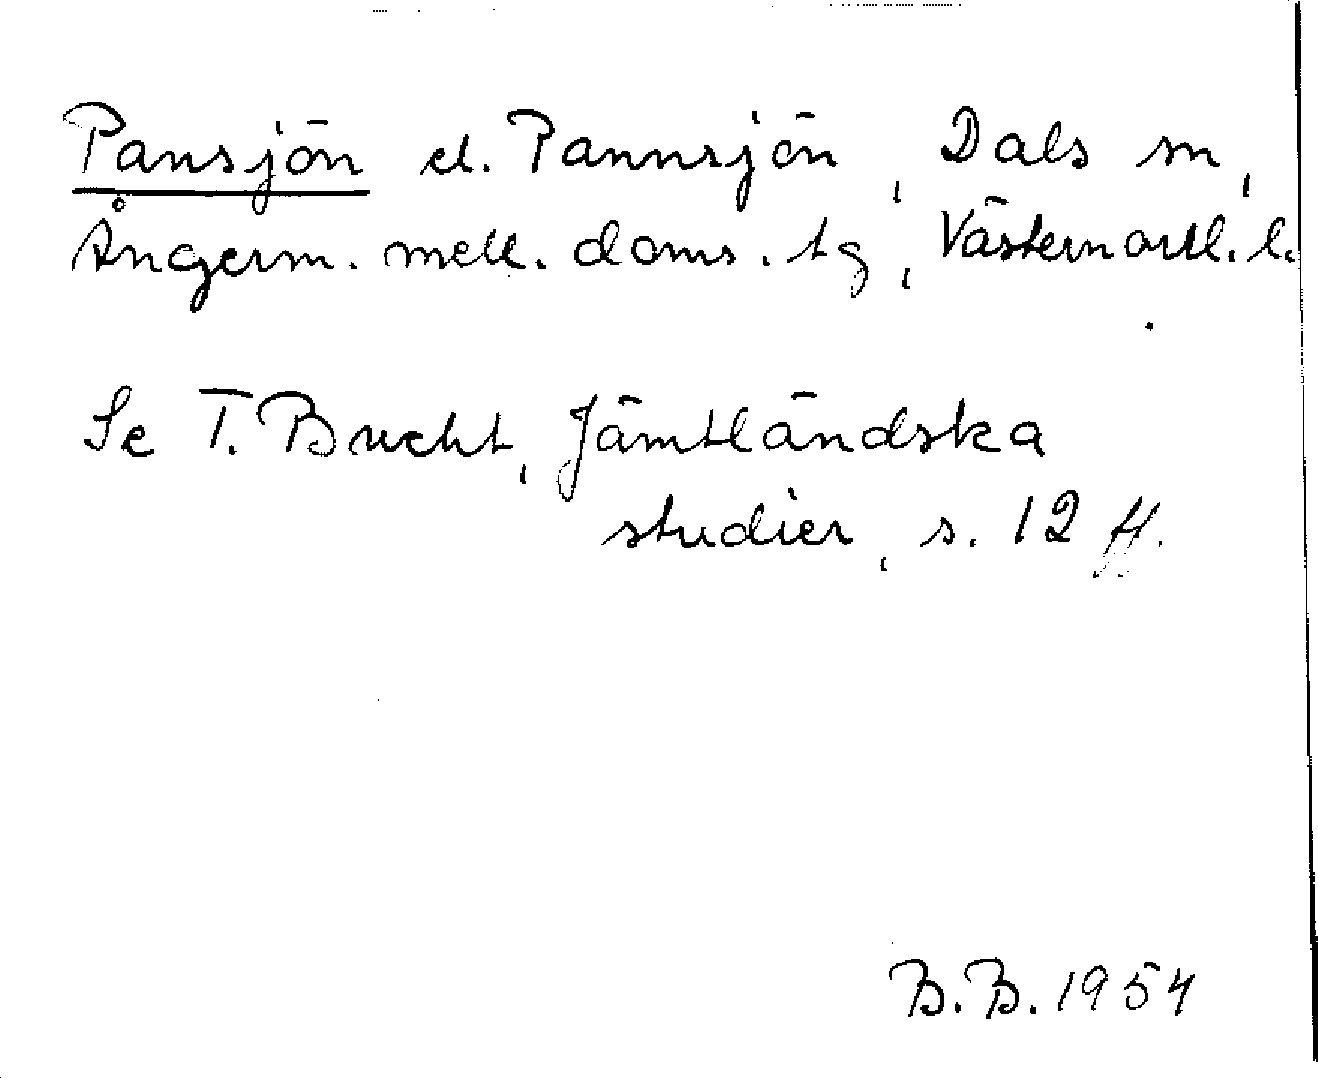 Pansjön el. Pannsjön, Dals sn,
Ångerm. mell. doms. tg, Västernorrl. l.
Se T. Bucht, Jämtländska
studier, s. 12 ff.
B.B. 1954